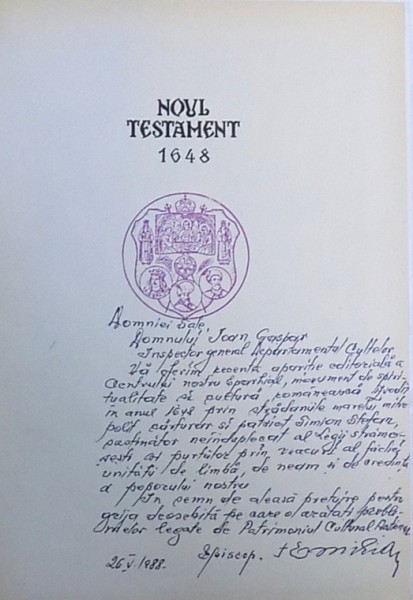 NOUL
TESTAMENT
1648
Domniei Sale,
Domnului Ioan Gaspar
Inspector general Departamentul Cultelor
Vă oferim recenta apariție editorială a
Centrului nostru Eparhial, monument de spiri-
tualitate și cultură românească tipărit
în anul 1648 prin strădaniile marelui mitro-
polit, cărturar și patriot Simion Ștefan,
păstrător neînduplecat al Legii strămo-
șești și purtător prin veacuri al făcliei
unității de limbă, de neam și de credință
a poporului nostru
În semn de aleasă prețuire pentru
grija deosebită pe care o arătați proble-
melor legate de Patrimoniul Cultural Național
26.V.1988. Episcop, † Emilian